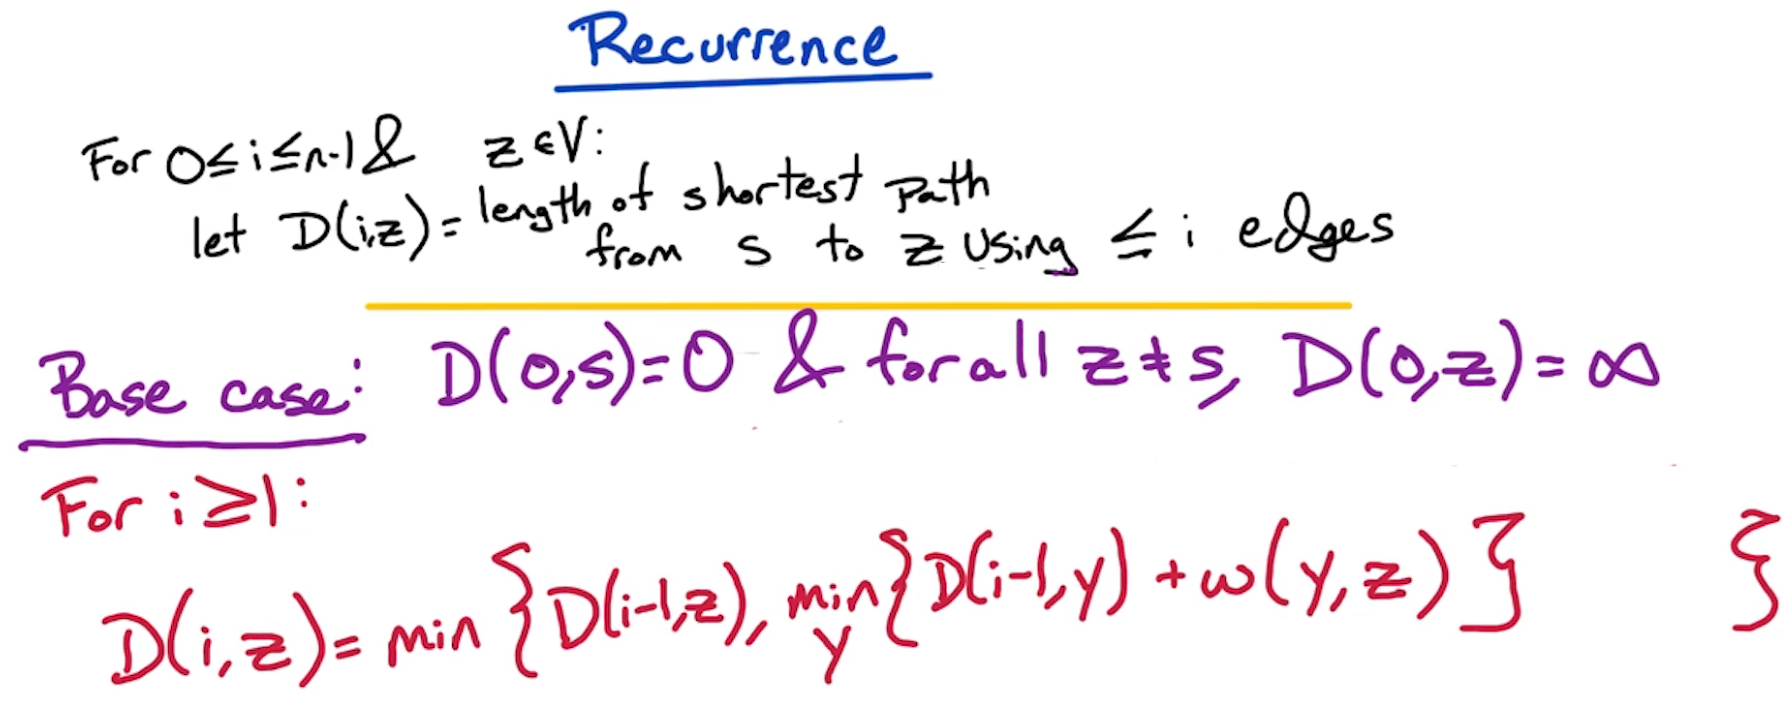 Recurrence
For 0≤i≤n-1 & z∈V:
let D(i,z) = length of shortest path
from s to z using ≤ i edges
Base case: D(0,s)=0 & for all z≠s, D(0,z)=∞
For i≥1:
D(i,z)= min { D(i-1,z), min { D(i-1,y) + w(y,z) } }
y